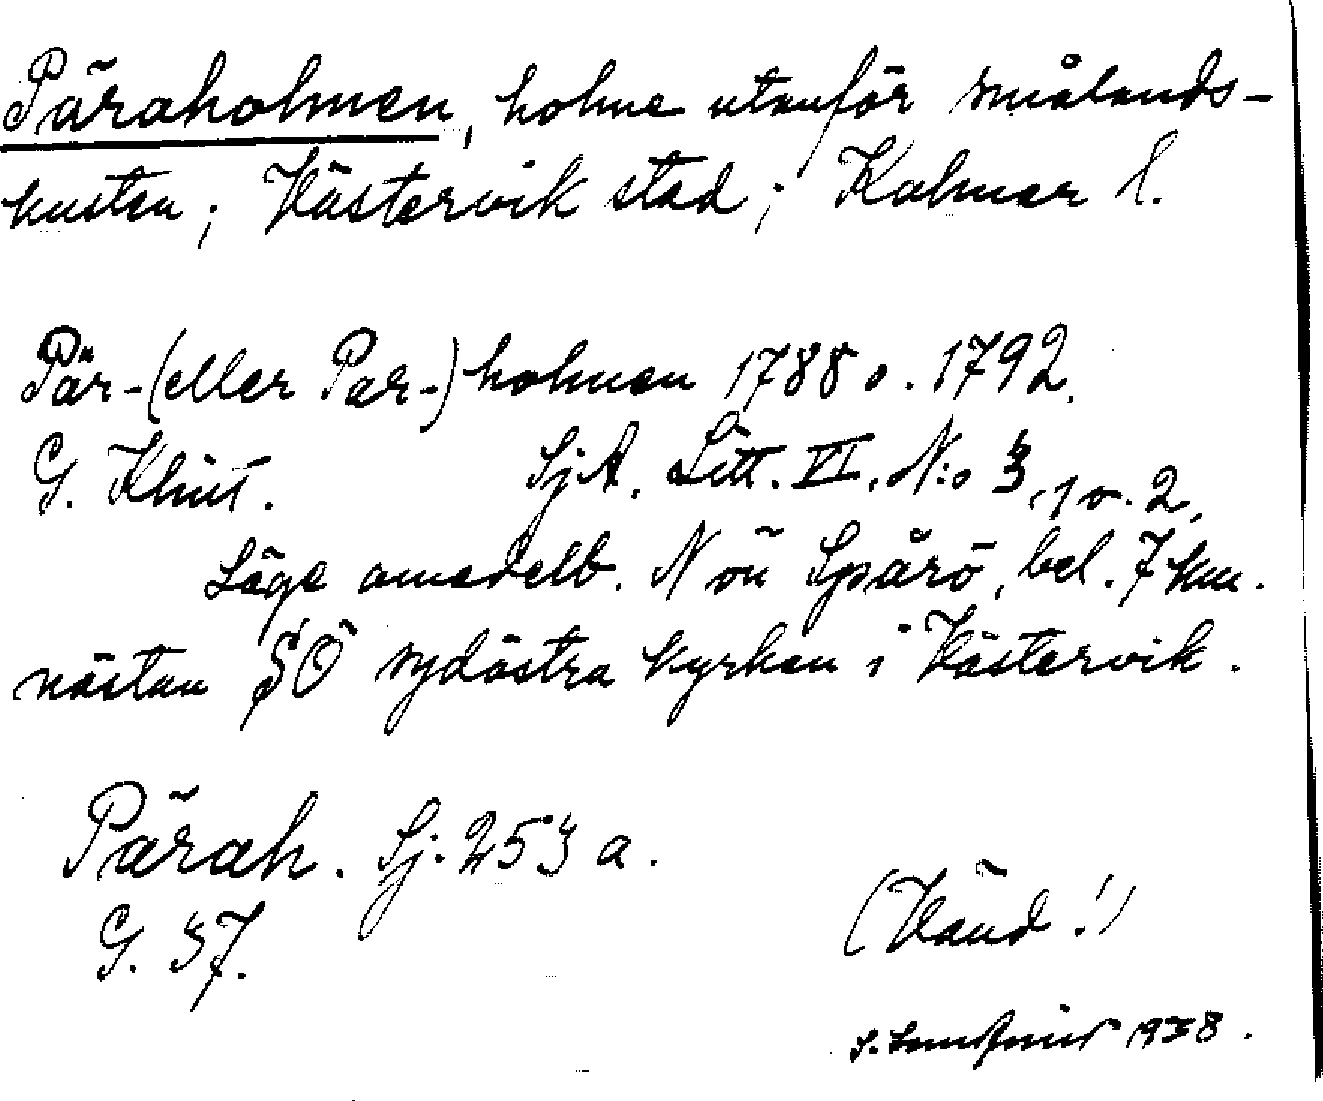 Päraholmen, holme utanför smålands-
kusten; Västervik stad; Kalmar l.
Pär-(eller Par-)holmen 1788 o. 1792.
G. Klint. SjA. Litt. VI. N:o 3, 1 o. 2.
Läge omedelb. N ön Spårö, bel. 7 km.
nästan SÖ sydöstra kyrkan i Västervik.
Pärah. Sj. 253 a.
G. 37.
(Vänd!)
1938.